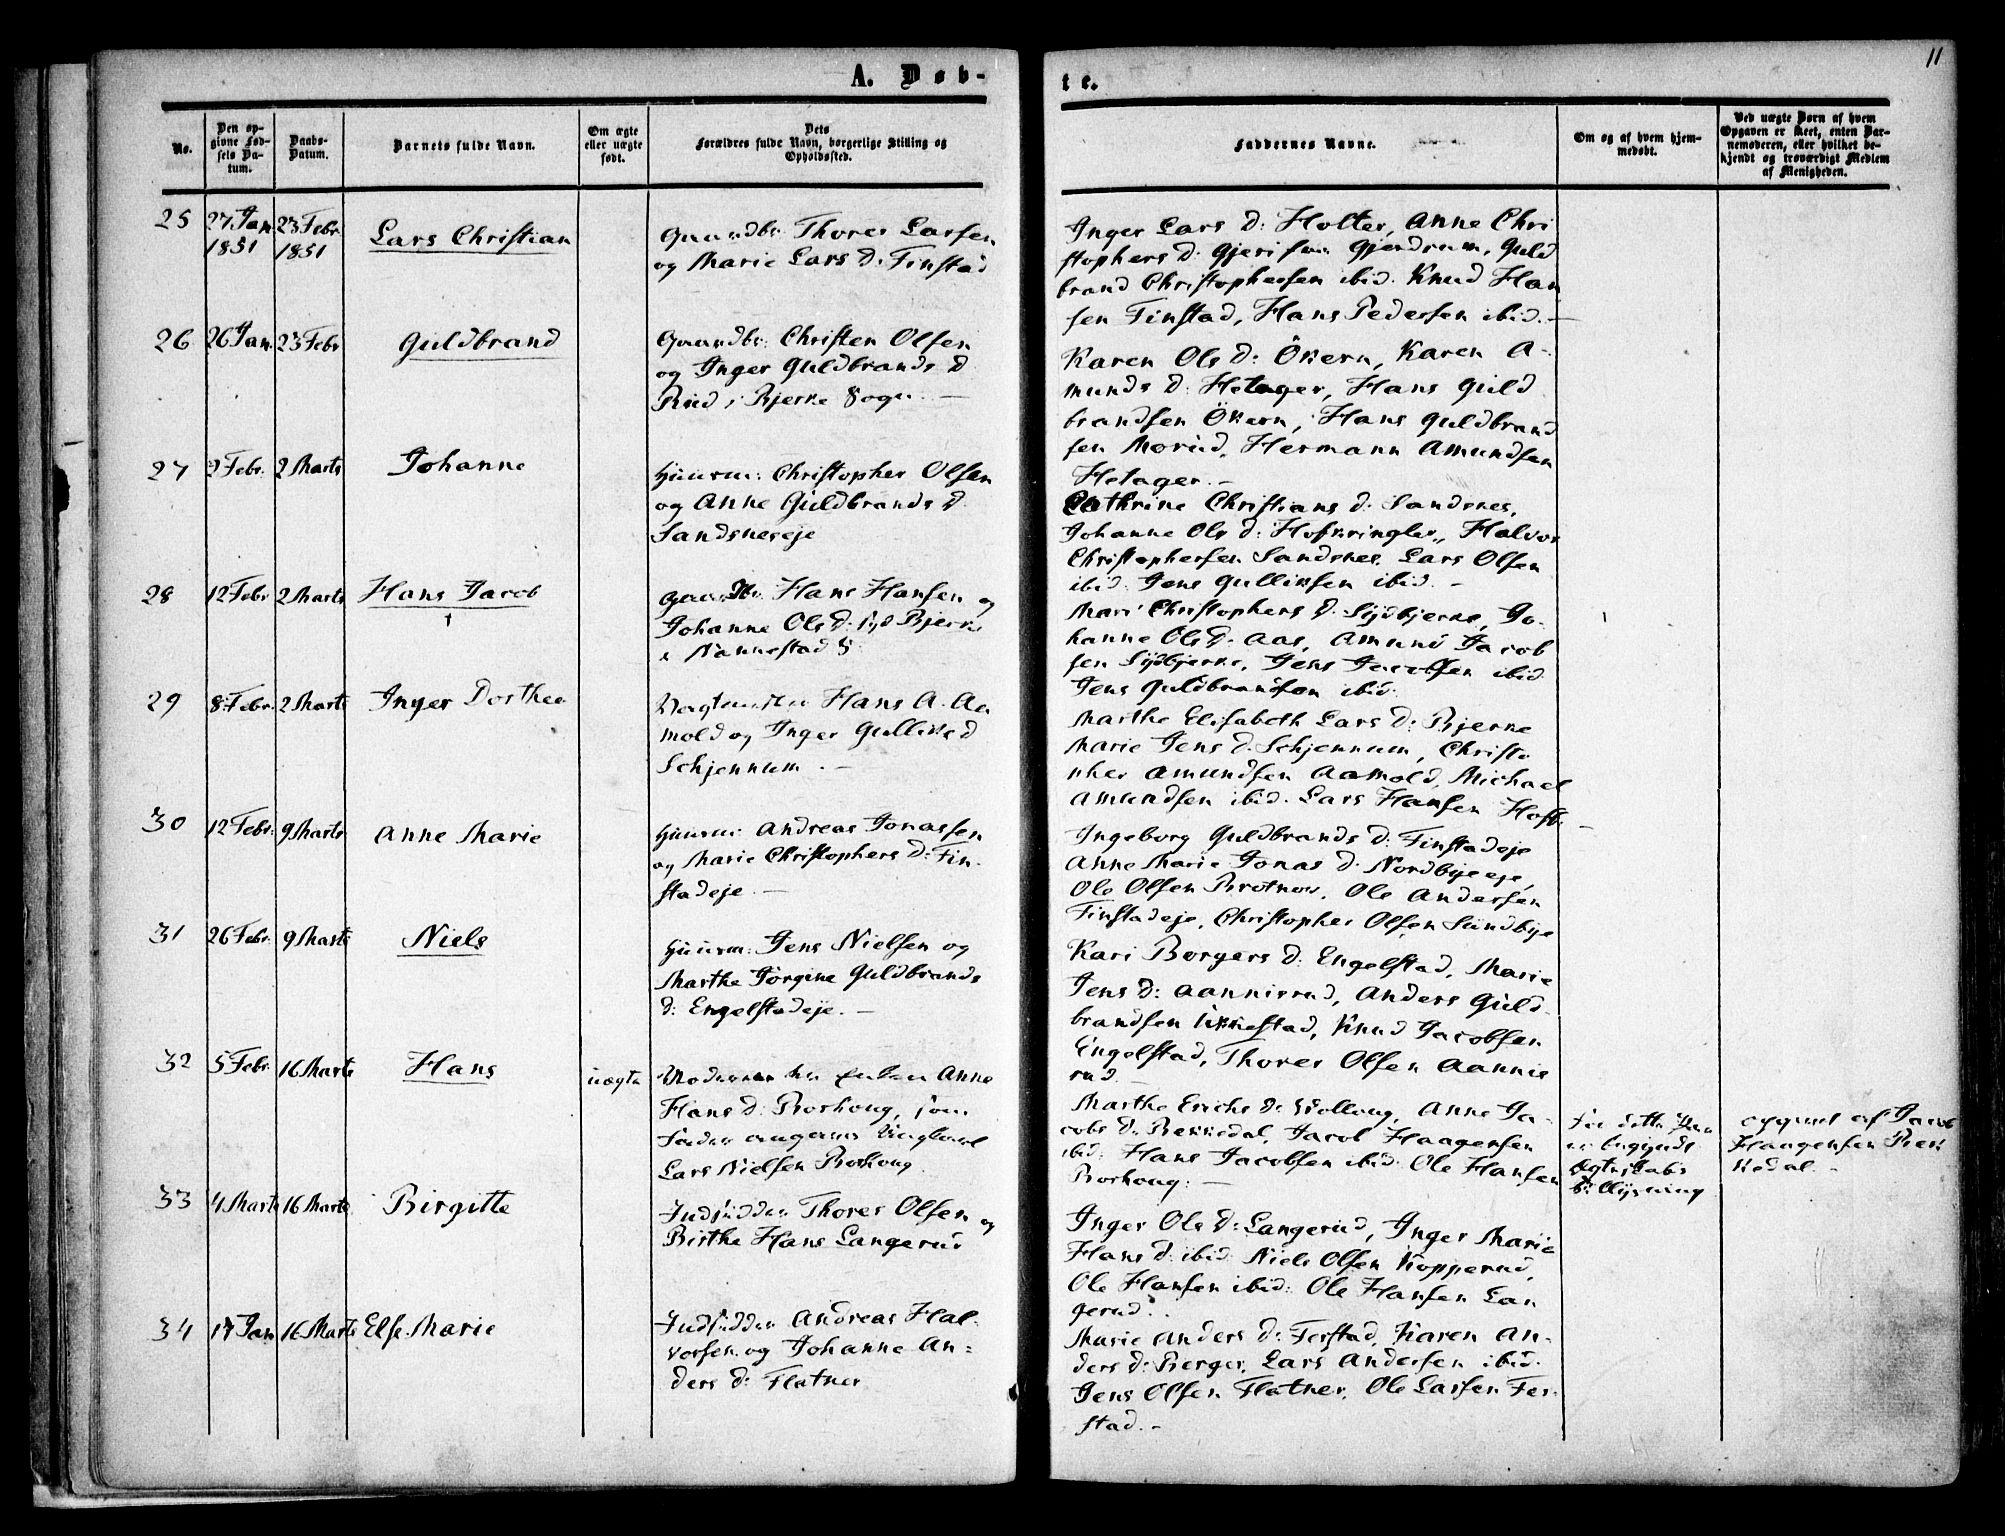 11
A. Døb-
te.
No.
Den op-
givne Fød-
sels Da-
tum.
Daabs-
Datum.
Barnets fulde Navn.
Om ægte
eller uægte
født.
Dets
Forældres fulde Navn, borgerlige Stilling og
Opholdssted.
Faddernes Navne.
Om og af hvem hjem-
medøbt.
Ved uægte Børn af hvem
Opgaven er skeet, enten Bar-
nemoderen, eller hvilket be-
kjendt og troværdigt Medlem
af Menigheden.
25
27 Jan.
1851
23 Febr
1851
Lars Christian
Gaardbr Thorer Larsen
og Marie Lars d: Finstad
Inger Lars d: Holter, Anne Chri
stophers d: Gjerdrum, Guld
brand Christophersen ibid. Knud Han
sen Finstad, Hans Pedersen ibid. —
26
26 Jan.
23 Febr
Guldbrand
Gaardbr: Christen Olsen
og Inger Guldbrands d
Rud i Bjerke Sogn. —
Karen Ols d: Økern, Karen A-
munds d: Hetager, Hans Guld
brandsen Økern, Hans Guldbrand
sen Morud, Hermann Amundsen
Hetager. —
27
2 Febr.
2 Marts
Johanne
Huusm: Christopher Olsen
og Anne Guldbrands d.
Sandsneseje
Cathrine Christians d: Sandsnes,
Johanne Ols d: Hofkringler, Halvor
Christophersen Sandsnes, Lars Olsen
ibid. Jens Gulliksen ibid. —
28
12 Febr
2 Marts
Hans Jacob
†
Gaardbr Hans Hansen og
Johanne Ols d: Syd Bjerke
i Nannestad S:
Mari Christophers d: Sydbjerke, Jo-
hanne Ols d: Aas, Amund Jacob
sen Sydbjerke, Jens Jacobsen ibid
Jens Guldbrandsen ibid.
29
8 Febr.
2 Marts
Inger Dorthea
Hans A. Aa
mold og Inger Gulliks d
Schjennum. —
Marthe Elisabeth Lars d: Bjerke
Marie Jens d: Schjennum, Christo
pher Amundsen Aamold, Michael
Amundsen ibid. Lars Hansen
30
12 Febr.
9 Marts
Anne Marie
Huusm: Andreas Jonassen
og Marie Christophers d: Fin-
stadeje —
Ingeborg Guldbrands d: Finstadeje
Anne Marie Jonas d: Nordbyeeje,
Ole Olsen Brotnov, Ole Andersen
Finstadeje, Christopher Olsen Sundbye
31
26 Febr.
9 Marts
Niels
Huusm: Jens Nielsen og
Marthe Jørgine Guldbrands
d: Engelstadeje. —
Kari Borgers d: Engelstad, Marie
Jens d: Aannisrud, Anders Guld
brandsen Ukkestad, Knud Jacobsen
Engelstad, Thorer Olsen Aannis
rud.
32
5 Febr.
16 Marts
Hans
uægte
Anne
Hans d: Borhoug, som
Fader angives Ungkarl
Lars Nielsen Borhoug.
Marthe Erichs d: Wolloug, Anne Ja-
cobs d: Bekkedal, Jacob Haagensen
ibid: Hans Jacobsen ibid: Ole Hansen
Borhoug: —
før dette Barn
er begjerdt
Ægteskabs
Lysning
opgivet af Jacob
Haagensen Bek
kedal. —
33
4 Marts
16 Marts
Birgitte
Indsidder Thorer Olsen og
Birthe Hans Langerud
Inger Ols d: Langerud, Inger Marie
Hans d: ibid. Niels Olsen Kopperud,
Ole Hansen ibid: Ole Hansen Lan
gerud.
34
17 Jan
16 Marts
Else Marie
Indsidder Andreas Hal
vorsen og Johanne An=
ders d: Flatner
Marie Anders d: Ferstad, Karen An-
ders d: Berger, Lars Andersen ibid.
Jens Olsen Flatner, Ole Larsen Fer-
stad. —